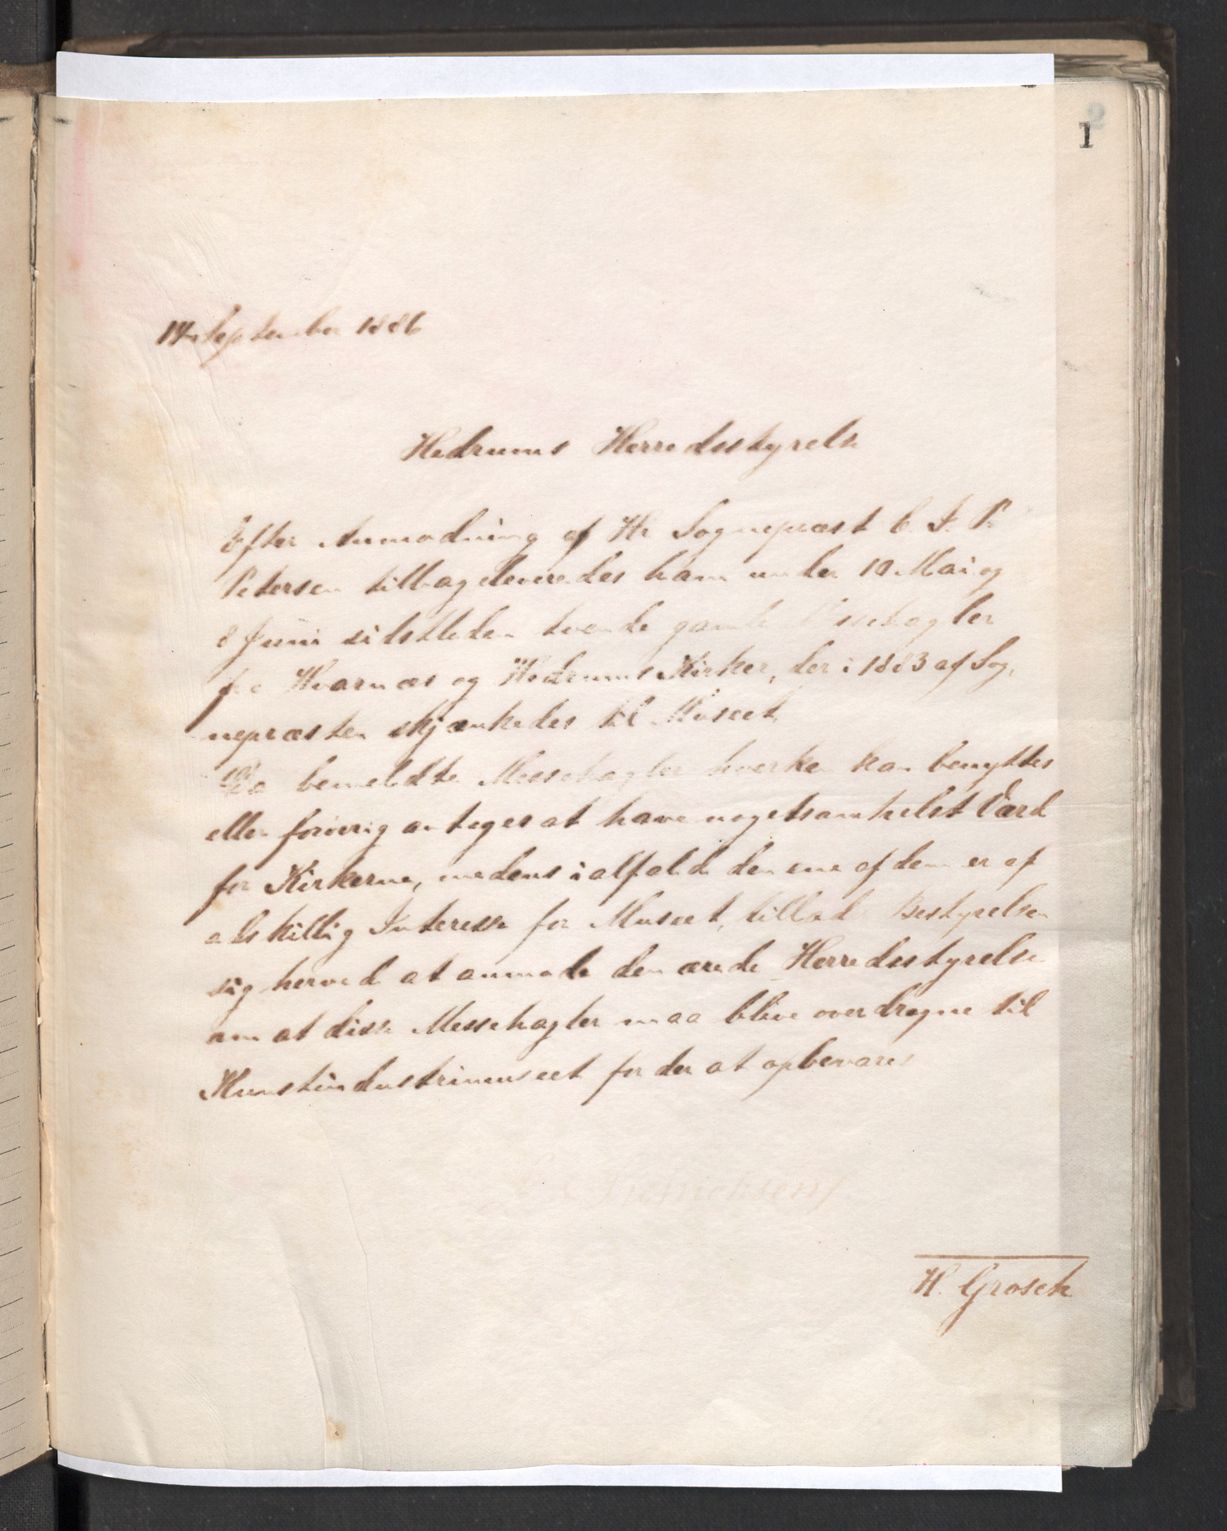 1
14 September 1886
Hedrums Herredsstyrelse
Efter Anmodning af Hr Sognepræst C. P.
Petersen tilbageleveredes ham under 10 Mai og
8 Juni sidstleden tvende gamle Messehagler
fra Hvarnæs og Hedrums Kirker, der i 1883 af Sog,
nepræsten skjænkedes til Museet,
Da bemeldte Messehagler hverken kan benyttes
eller forøvrig antages at have nogetsomhelst Værd
for Kirkerne, medens ialfald den ene af dem er af
adskillig Interesse for Museet, tillad Bestyrelsen
sig herved at anmode den ærede Herredsstyrelse
om at disse Messehagler maa blive overdragne til
Kunstindustrimuseet for der at opbevares
H. Grosch